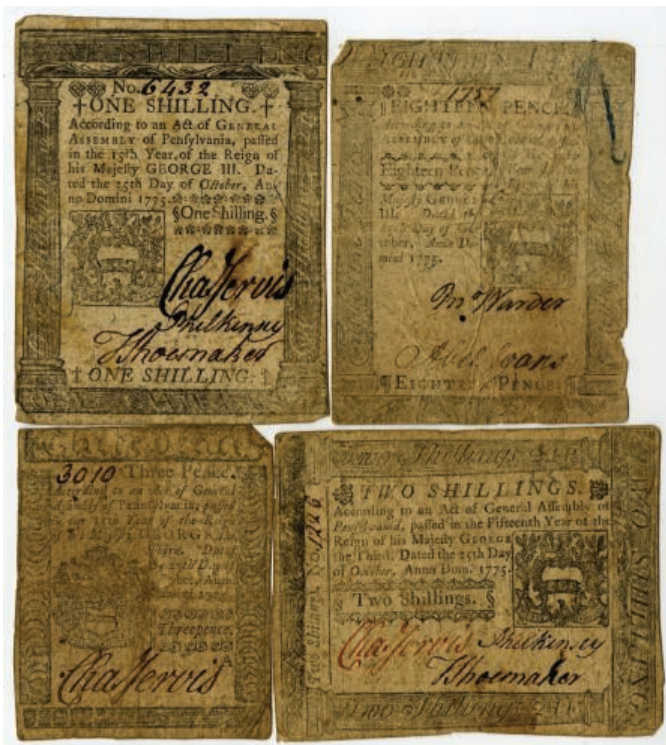 ONE SHILLING
No. 6432
ONE SHILLING.
According to an Act of GENERAL
ASSEMBLY of Pensylvania, passed
in the 15th Year, of the Reign of
his Majesty GEORGE III. Da-
ted the 25th Day of October, An-
no Domini 1775.
§One Shilling.§
Cha Jervis
Phil Kinsey
T Shoemaker
ONE SHILLING.
EIGHTEEN
1757
EIGHTEEN PENCE
Eighteen Pence
Majesty GEORGE
III. Dated
ber, Anno Do
mini 1775.
Jn. Warder
Evans
EIGHTEEN PENCE
Three Pence
3010 Three Pence.
According to an Act of General
of Pensylvania, passed
in the 15th Year of the Reign
GEORGE the
Third. Dated
the 25th Day of
Threepence.
A
Cha Jervis
Two Shillings
TWO SHILLINGS.
According to an Act of General Assembly of
Pensylvania, passed in the Fifteenth Year of the
Reign of his Majesty GEORGE
the Third. Dated the 25th Day
of October, Anna Dom. 1775.
§ Two Shillings. §
Cha Jervis Phil Kinsey
T Shoemaker
Two Shillings
Two Shillings. No. 1226
TWO SHILLING